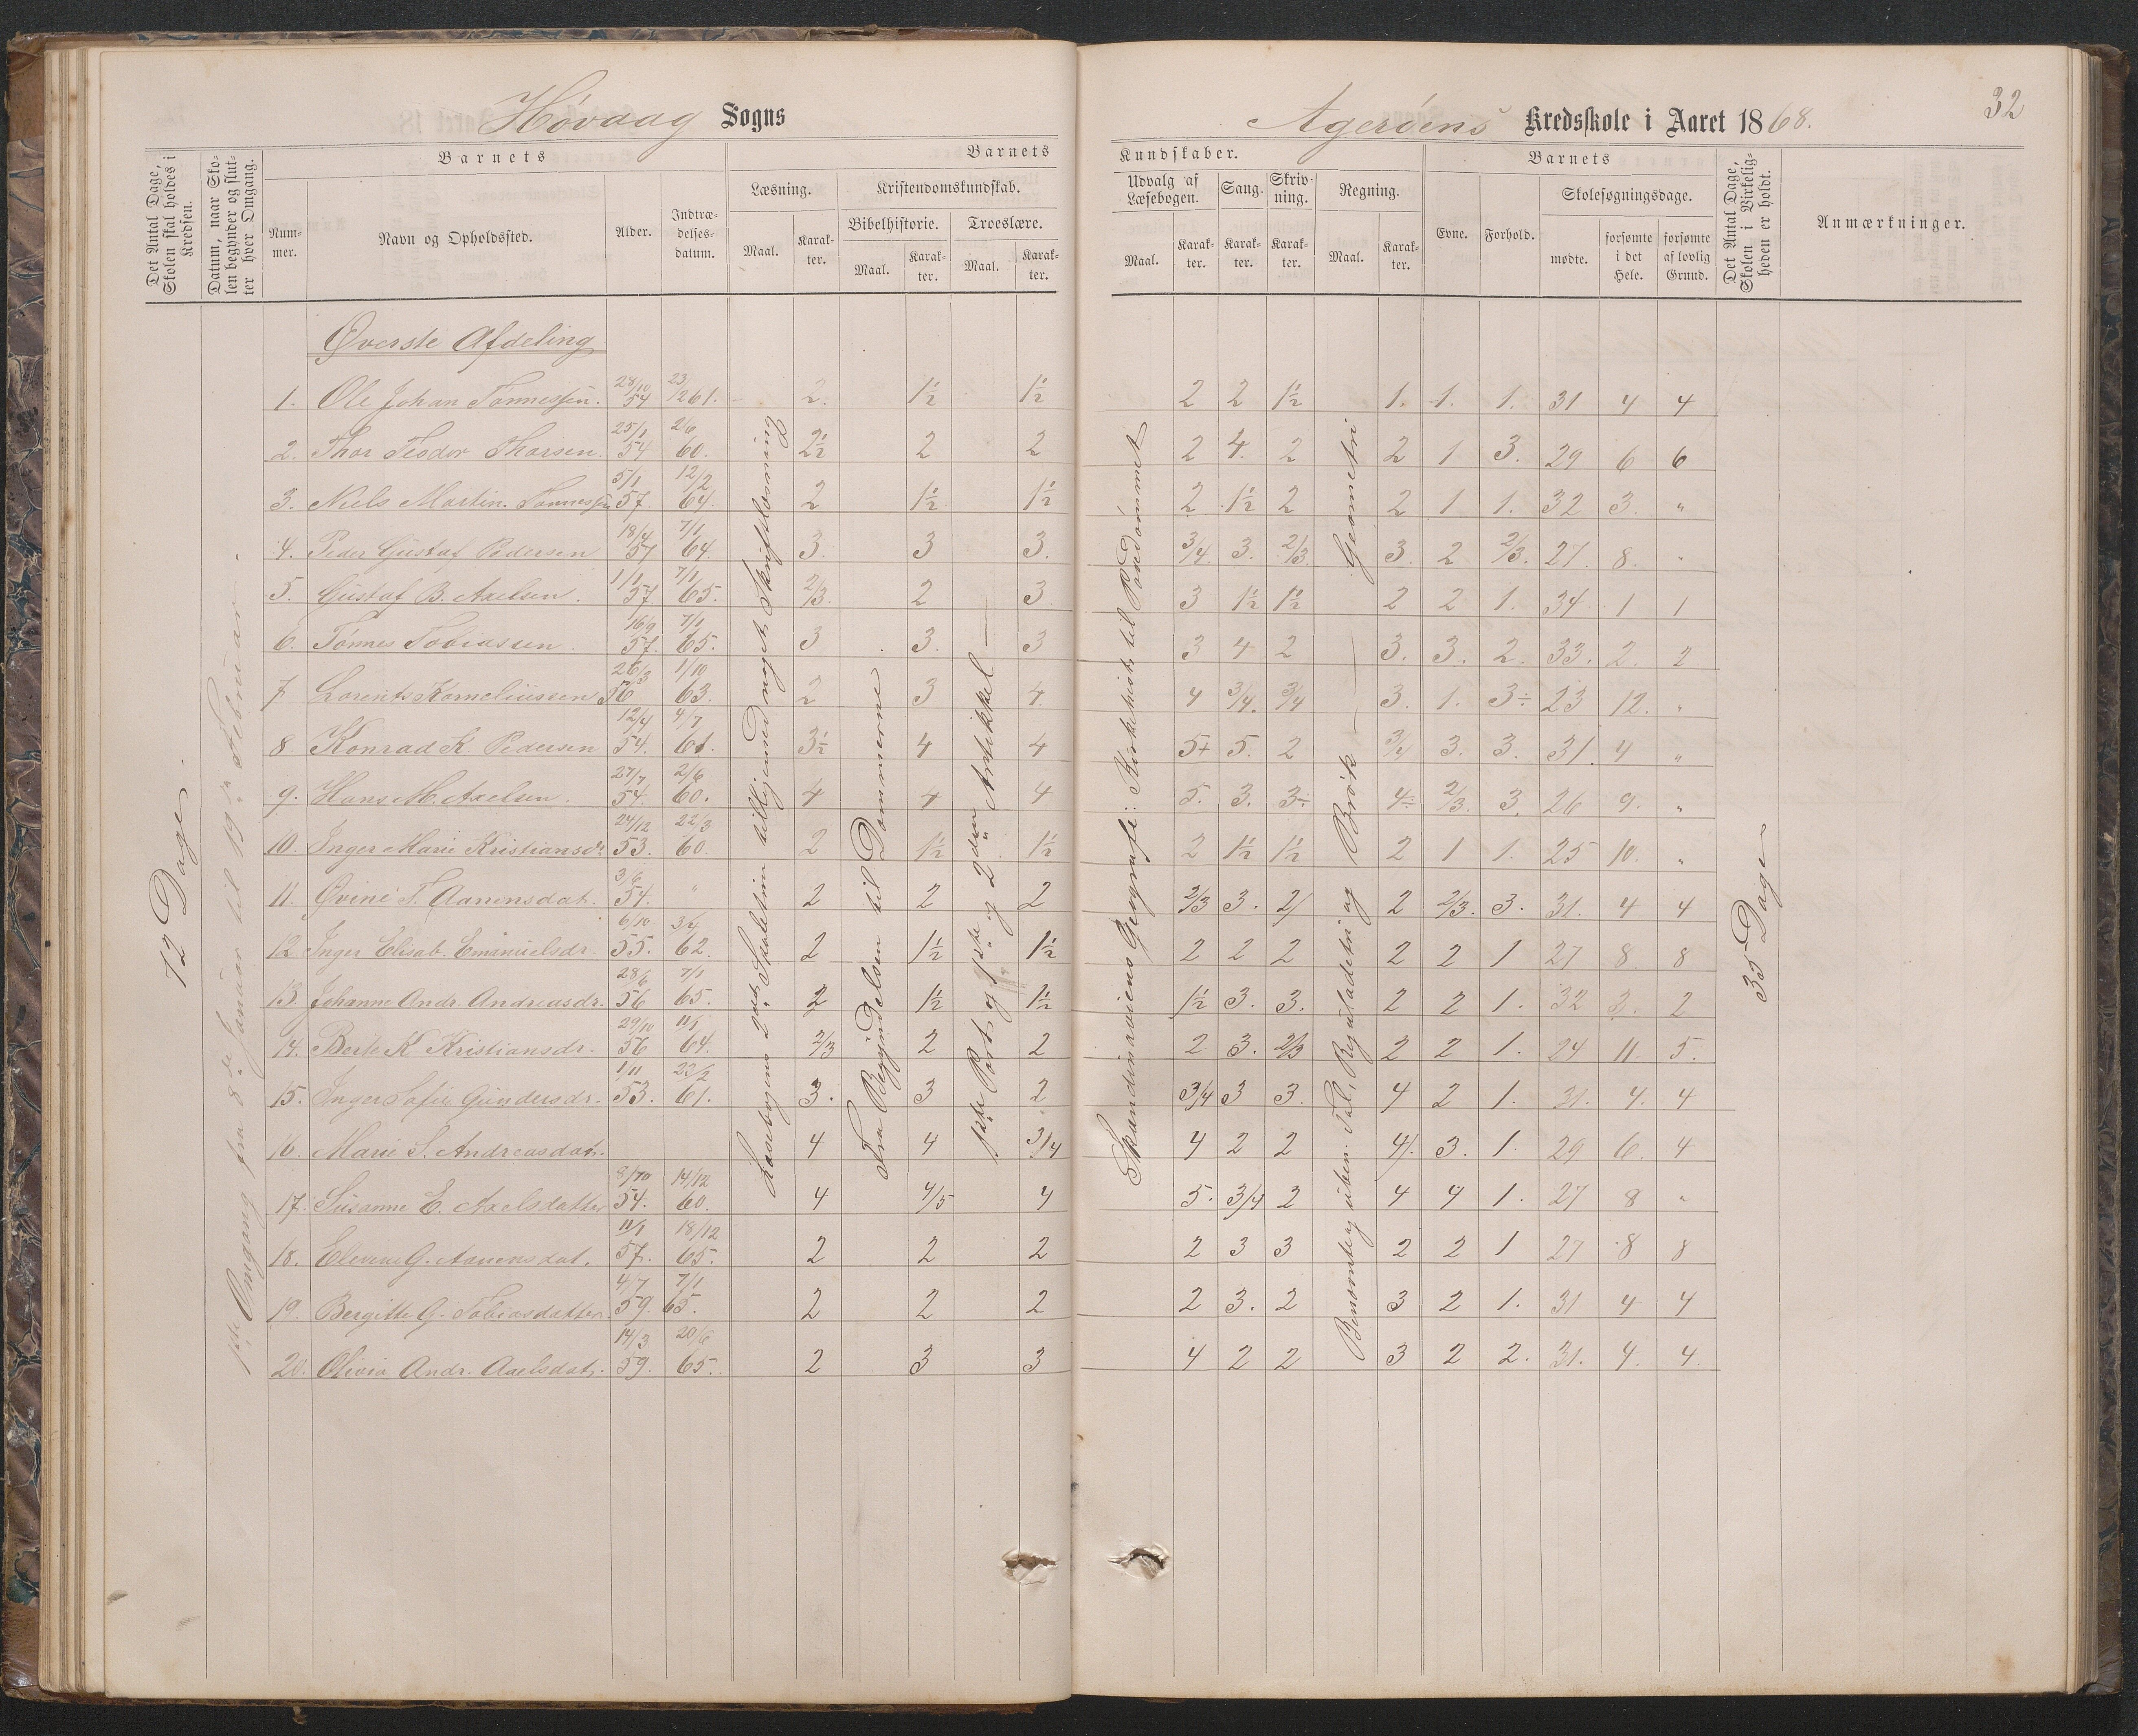 Høvaag Sogns
Agerøens Kredsskole i Aaret 1868.
32
Det Antal Dage, Skolen skal holdes i Kredsen.
Datum, naar Skolen begynder og slutter hver Omgang.
Barnets
Nummer.
Navn og Opholdssted.
Alder.
Indtrædelsesdatum.
Barnets
Læsning.
Kristendomskundskab.
Bibelhistorie.
Troeslære.
Maal.
Karakter.
Maal.
Karakter.
Maal.
Karakter.
Kundskaber.
Udvalg af Læsebogen.
Sang.
Skrivning.
Regning.
Maal.
Karakter.
Karakter.
Karakter.
Maal.
Karakter.
Barnets
Evne.
Forhold.
Skolesøgningsdage.
mødte.
forsømte i det Hele.
forsømte af lovlig Grund.
Det Antal Dage, Skolen i Virkeligheden er holdt.
Anmærkninger.
72 Dage.
1ste Omgang fra 8de Januar til 19de Februar.
Læsebogens 2det Skoletrin tilligemed noget Skriftlæsning
Fra Begyndelsen til Dommerne
1ste Part og 1ste og 2den Artikkel
Skandinaviens Geografi: Kirkehist. til Pavedømmet
Benævnte og uben. Tal, Reguladetri og Brøk — Geometri
35 Dage
Øverste Afdeling
1. Ole Johan Tønnessen. 28/10 54 23/12 61. 2. 1½ 1½ 2 2 1½ 1. 1. 1. 31 4 4
2. Thor Teodor Thorsen. 25/1 54 2/6 60. 2½ 2 2 2 4. 2 2 1 3. 29 6 6
3. Niels Martin Tønnessen 5/1 57. 12/2 64. 2 1½ 1½ 2 1½ 2 2 1 1. 32 3. "
4. Peder Gustaf Pedersen 18/4 57 7/1 64. 3. 3 3. 3/4 3. 2/3 3. 2 2/3. 27. 8. "
5. Gustaf B. Axelsen. 1/1 57. 7/1 65. 2/3. 2 3 3 1½ 1½ 2 2 1. 34 1 1
6. Tønnes Tobiassen. 16/9 57. 7/1 65. 3 3. 3 3 4 2 3. 3. 2. 33. 2. 2
7 Lorents Korneliussen 26/3 56 1/10 63. 2 3 4. 4 3/4. 3/4 3. 1. 3÷ 23 12. "
8 Konrad K. Pedersen 12/4 54. 4/7 61. 3½ 4 4 5+ 5. 2 3/4 3. 3. 31. 4 "
9. Hans M. Axelsen. 27/7 54. 2/6 60. 4 4 4 5. 3. 3÷ 4÷ 2/3. 3. 26 9. "
10. Inger Marie Kristiansdr. 24/12 53. 22/3 60. 2 1½ 1½ 2 1½ 1½ 2 1 1. 25 10. "
11. Øvine T. Aanensdat. 3/6 54. " 2 2 2 2/3 3. 2/ 2 2/3. 3. 31. 4 4
12. Inger Elisab. Emanuelsdr. 6/10 55. 3/4 62. 2 1½ 1½ 2 2 2 2 2 1 27 8 8
13. Johanne Andr. Andreasdr. 28/6 56 7/1 65. 2 1½ 1½ 1½ 3. 3. 2 2 1. 32 3. 2
14. Berte K Kristiansdr. 29/10 56 11/1 64. 2/3 2 2 2 3. 2/3 2 2 1. 24 11. 5.
15. Inger Sofie Gundersdr. 1/11 53. 22/2 61. 3. 3 2 3/4 3 3. 4 2 1. 31. 4. 4
16. Marie S. Andreasdatr. 4 4 3/4 4 2 2 4/. 3. 1. 29 6. 4
17. Susanne E. Axelsdatter 9/10 54. 14/12 60. 4 4/5 4 5. 3/4 2 4 4 1. 27 8 "
18. Elevine G. Aanensdat. 11/1 57. 18/12 65. 2 2 2 2 3 3 2 2 1 27 8 8
19. Bergitte G. Tobiasdatter. 4/7 59. 7/1 65. 2 2 2 2 3. 2 3 2 1. 31 4 4
20. Olivia Andr. Axelsdatr. 14/3 59. 20/6 65. 2 3 3 4 2 2 3 2 2. 31. 4. 4.